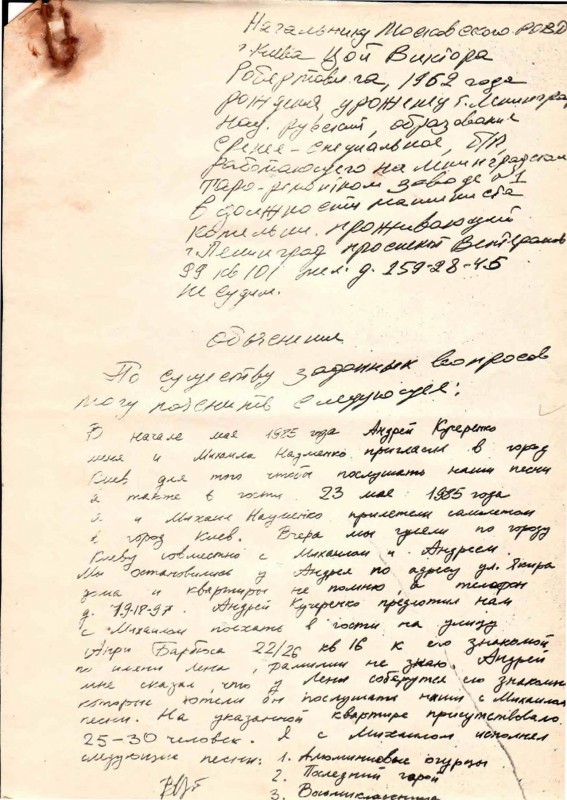 Начальнику Московского РОВД
г. Киева Цой Виктора
Робертовича, 1962 года
рождения уроженец г. Ленинград,
нац. русский, образование
средне-специальное, б/п,
работающего на Ленинградском
заводе №1
в должности машиниста
котельни. проживающий
г. Ленинград проспект Ветеранов
99 кв 101 тел. д. 259-28-45
не судим.
Объяснение
По существу заданных вопросов
могу пояснить следующее:
В начале мая 1985 года Андрей Кучеренко
меня и Михаила Науменко пригласил в город
Киев для того чтобы послушать наши песни
а также в гости. 23 мая 1985 года
я и Михаил Науменко прилетели самолетом
в город Киев. Вчера мы гуляли по городу
Киеву совместно с Михаилом и Андреем.
Мы остановились у Андрея по адресу ул. Якира
дома и квартиры не помню, а телефон
д. 19-18-97. Андрей Кучеренко предложил нам
с Михаилом поехать в гости на улицу
Анри Барбюса 22/26 кв 16 к его знакомой
по имени Лена, фамилии не знаю. Андрей
мне сказал, что у Лены соберутся его знакомые
которые хотели бы послушать наши с Михаилом
песни. На указанной квартире присутствовало
25-30 человек. Я с Михаилом исполнял
следующие песни: 1. Алюминиевые огурцы
2. Последний герой
3. Восьмиклассница